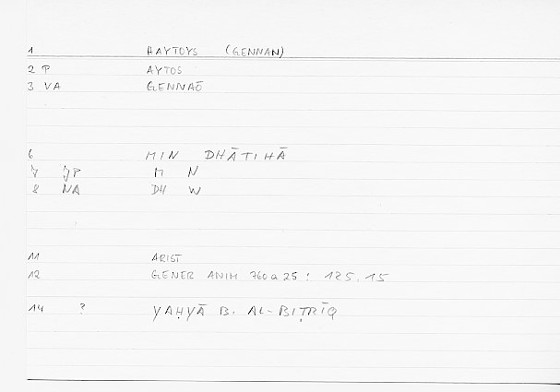 1 HAYTOYS (GENNAN)
2 P AYTOS
3 VA GENNAŌ
6 MIN DHĀTIHĀ
7 JP M N
8 NA DH W
11 ARIST
12 GENER ANIM 760a25 : 125.15
14 ? YAḤYĀ B. AL-BIṬRĪQ